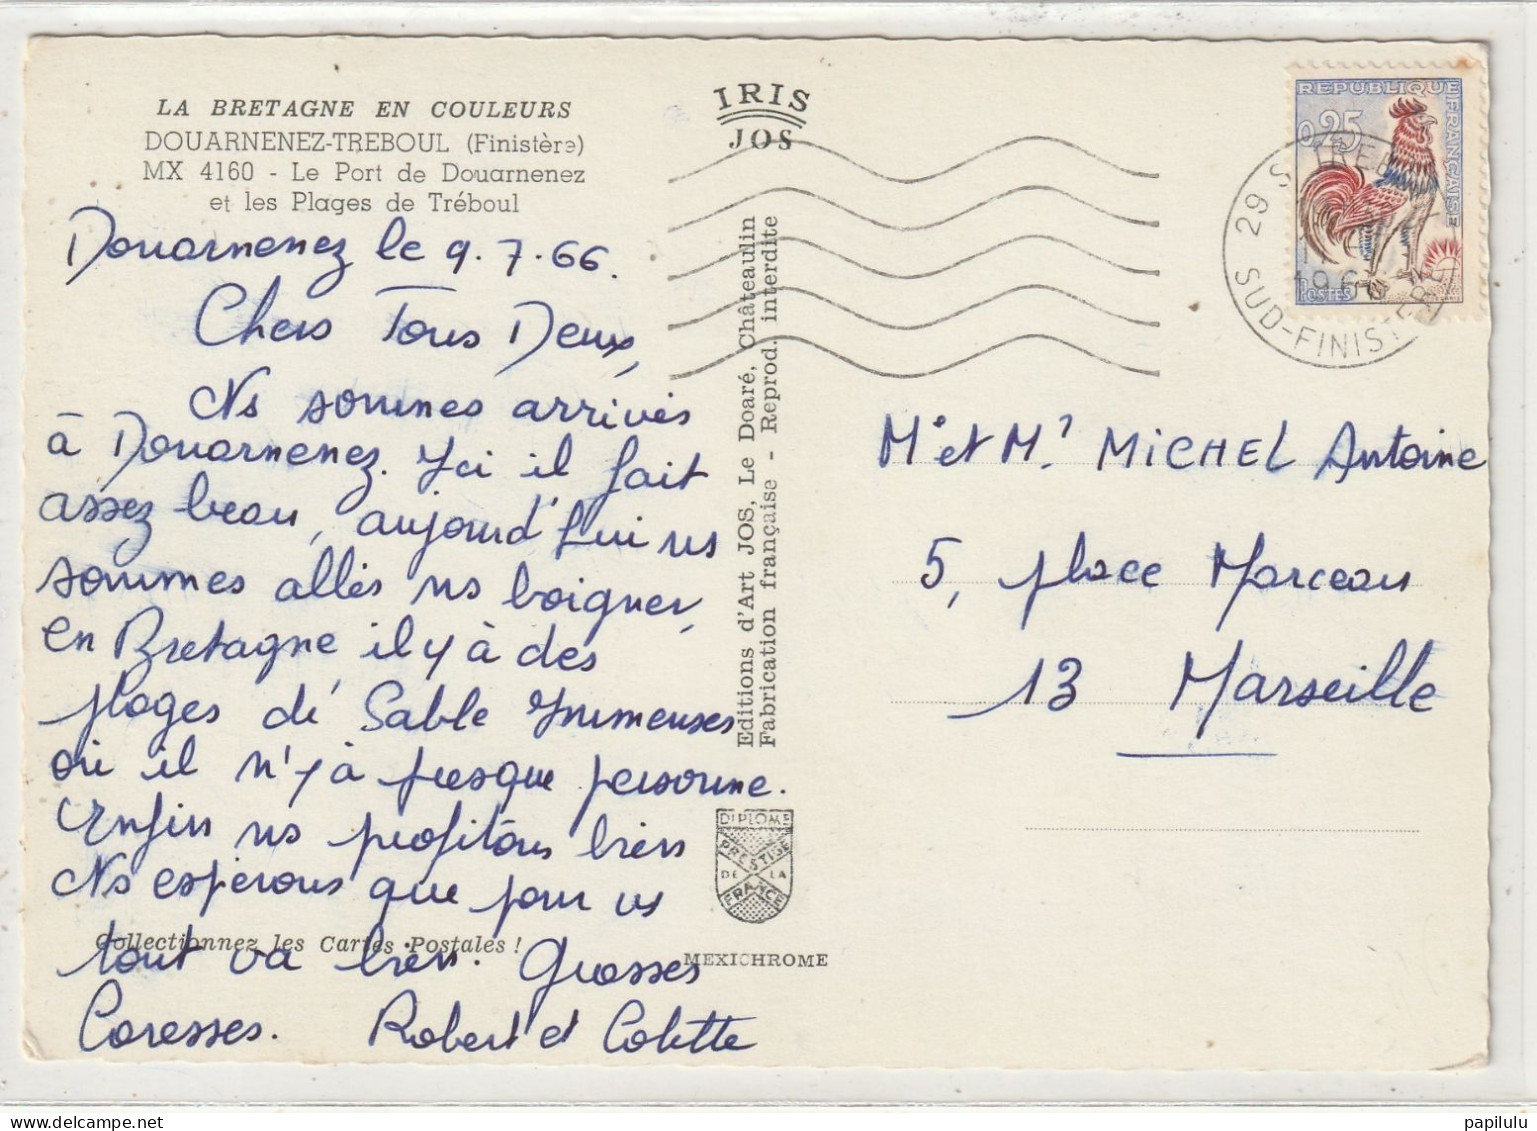 LA BRETAGNE EN COULEURS
DOUARNENEZ-TREBOUL (Finistère)
MX 4160 - Le Port de Douarnenez
et les Plages de Tréboul
Douarnenez le 9.7.66.
Chers Tous Deux,
Ns sommes arrivés
à Douarnenez. Ici il fait
assez beau, aujourd'hui ns
sommes allés ns baigner,
en Bretagne il y à des
plages de Sable Immenses
où il n'y à presque personne.
Enfin ns profitons bien
Ns esperons que pour vs
Collectionnez les Cartes Postales !
tout va bien. Grosses
Caresses. Robert et Colette
IRIS
JOS
Editions d'Art JOS, Le Doaré, Châteaulin
Fabrication française - Reprod. interdite
DIPLOME
PRESTIGE
DE LA
FRANCE
MEXICHROME
REPUBLIQUE FRANÇAISE
0,25
POSTES
29 S TREBOUL
196
SUD-FINISTERE
Mr et Me MICHEL Antoine
5, place Marceau
13 Marseille
papilulu